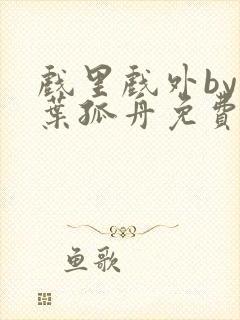 戲里戲外by
葉孤舟免費
鱼歌